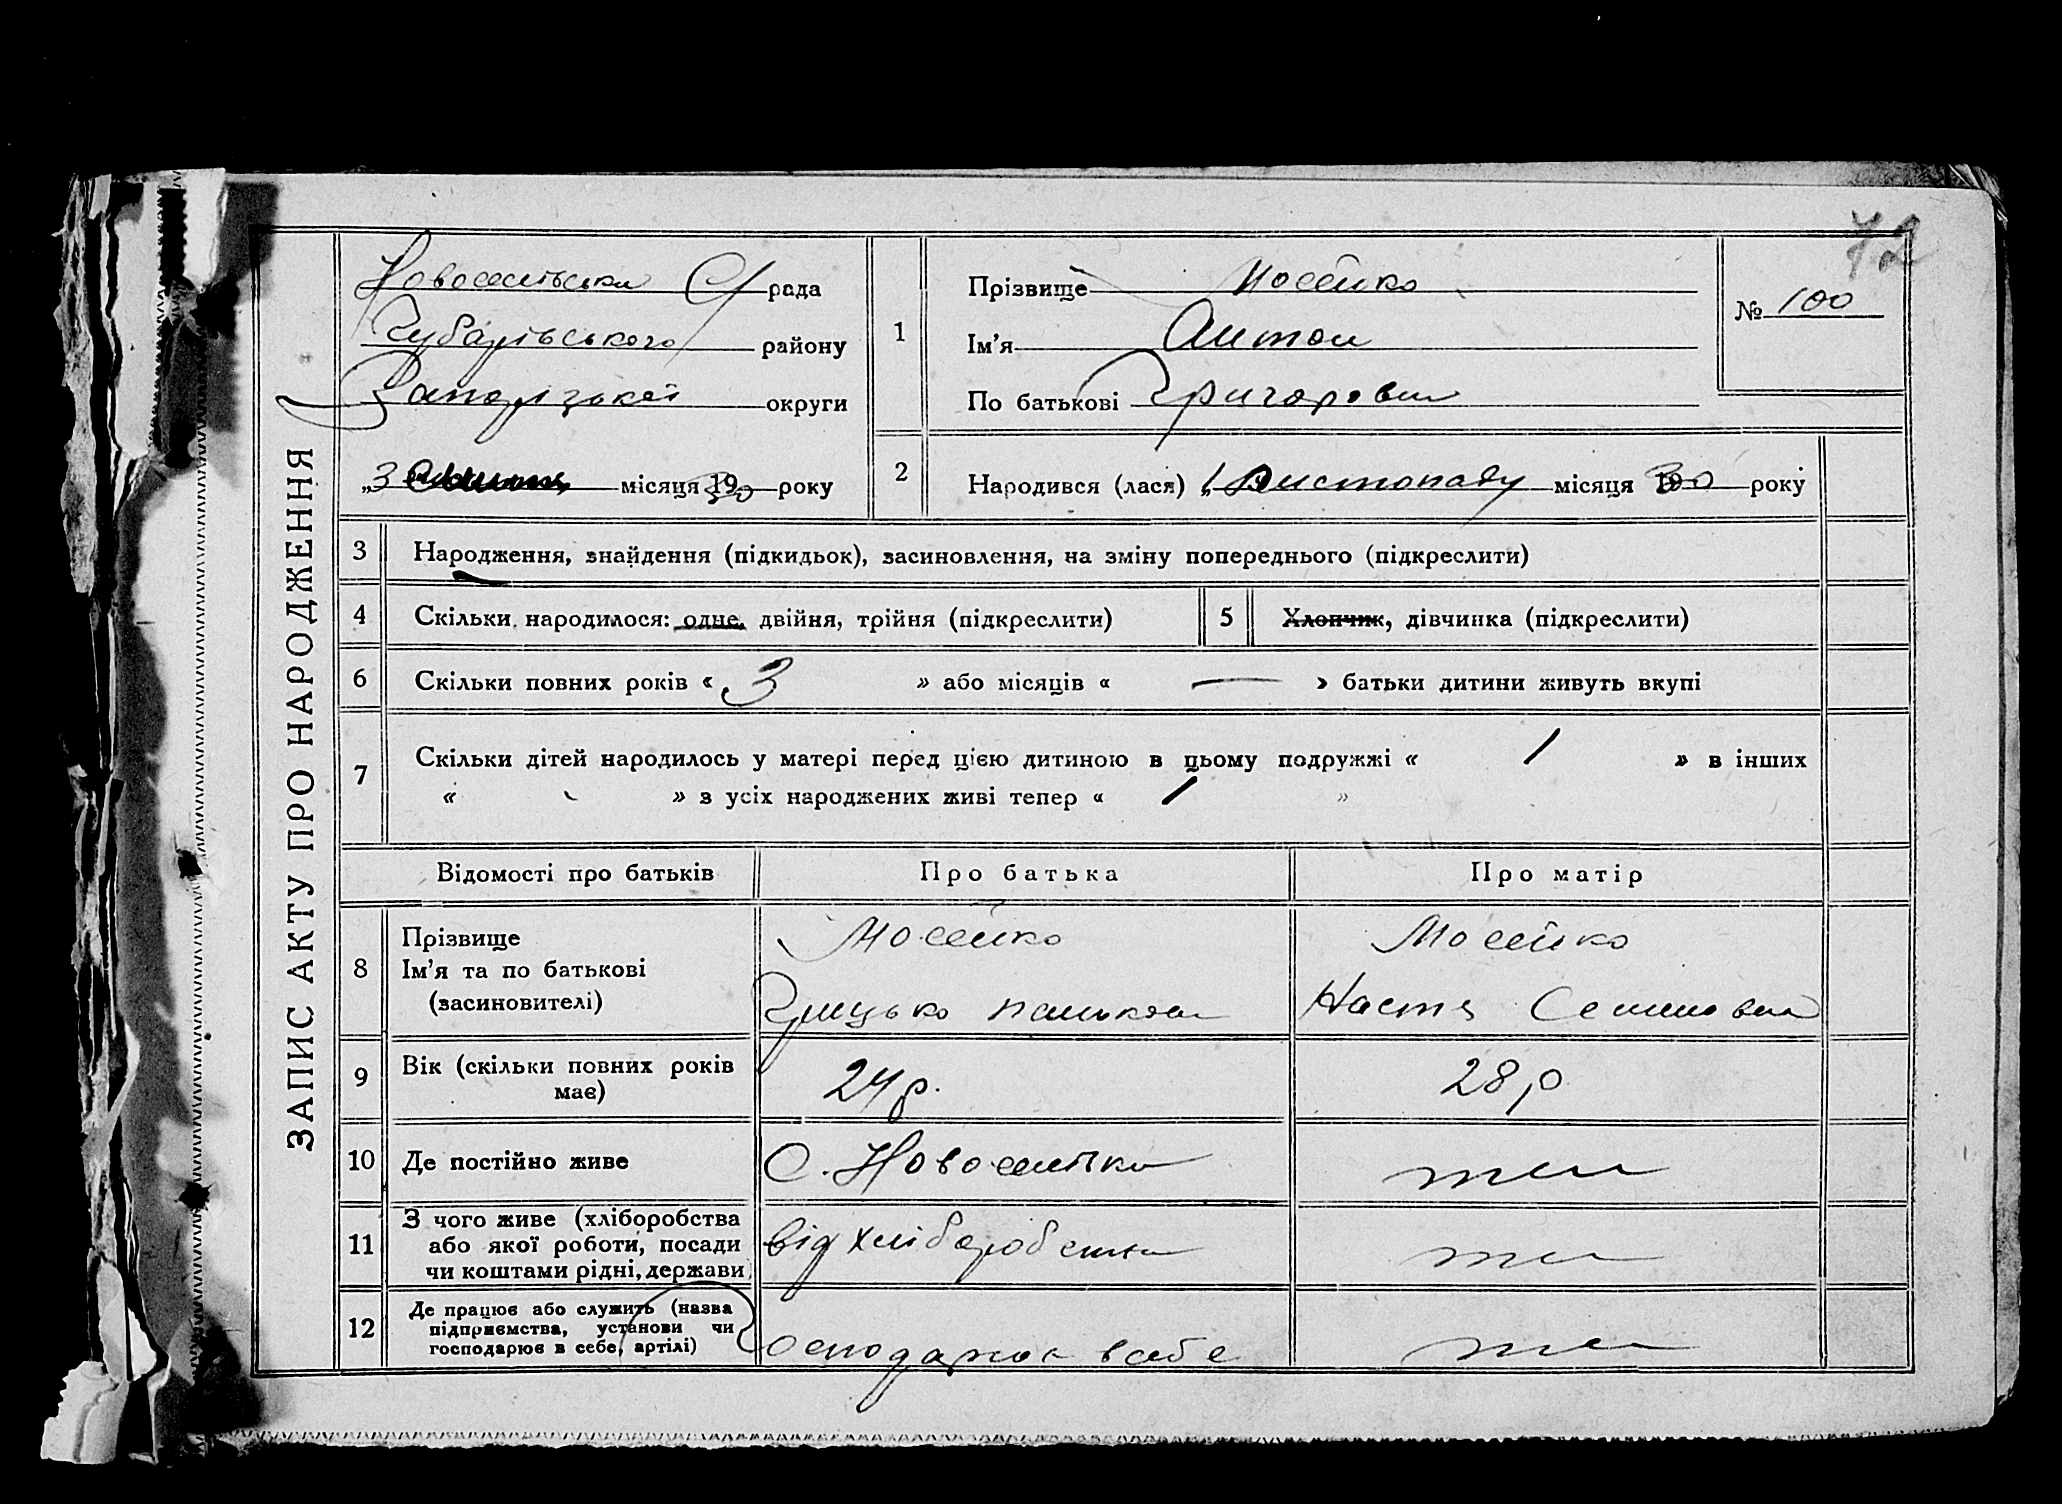 72
ЗАПИС АКТУ ПРО НАРОДЖЕННЯ
Новоселівська С/рада
Чубарівського району
Запорізької округи
„3 місяця 1930 року
1
Прізвище Мосейко
Ім'я Антон
По батькові Григорович
№ 100
2
Народився (лася) „1 Листопаду місяця 1930 року
3 Народження, знайдення (підкидьок), засиновлення, на зміну попереднього (підкреслити)
4 Скільки народилося: одне, двійня, трійня (підкреслити)
5 Хлопчик, дівчинка (підкреслити)
6 Скільки повних років « 3 » або місяців « — » батьки дитини живуть вкупі
7 Скільки дітей народилось у матері перед цією дитиною в цьому подружжі « 1 » в інших
« » з усіх народжених живі тепер « 1 »
Відомості про батьків Про батька Про матір
8
Прізвище
Ім'я та по батькові
(засиновителі)
Мосейко
Грицько
Мосейко
Настя Семеновна
9 Вік (скільки повних років
має)
24 р.
28 р
10 Де постійно живе
С. Новоселівка
тт
11 З чого живе (хліборобства
або якої роботи, посади
чи коштами рідні, держави
від хліборобства
12 Де працює або служить (назва
підприємства, установи чи
господарює в себе, артілі)
Господарює в себе